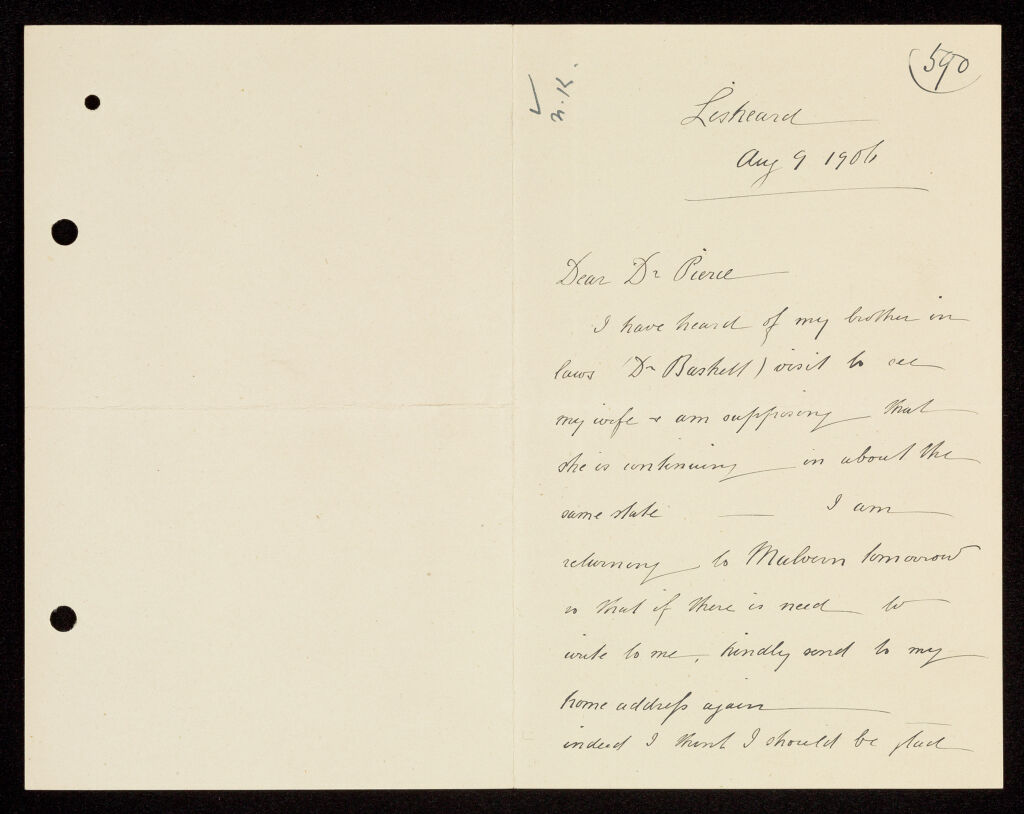 590
n.K.
Liskeard
Aug 9 1906
Dear Dr Pierce
I have heard of my brother in
laws (Dr Baskett) visit to see
my wife & am supposing that
she is continuing in about the
same state — I am
returning to Malvern tomorrow
so that if there is need to
write to me, kindly send to my
home address again
indeed I think I should be glad